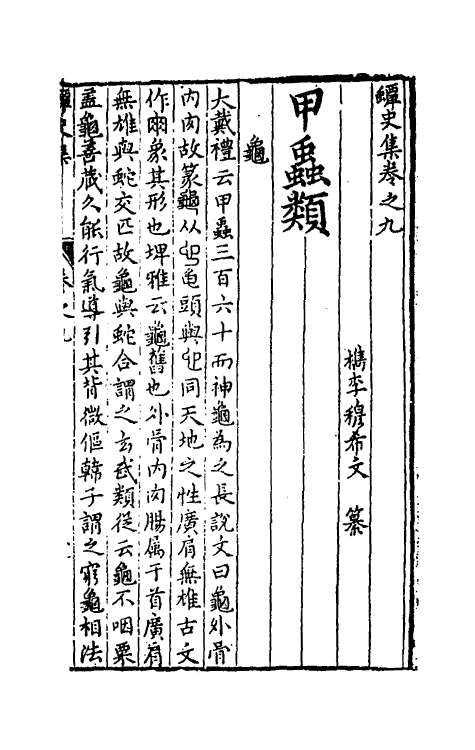 蟫史集卷之九
檇李穆希文 纂
甲蟲類
龜
大戴禮云甲蟲三百六十而神龜為之長說文曰龜外骨
內肉故篆龜从它龜頭與它同天地之性廣肩無雄古文
作𠁴象其形也埤雅云龜舊也外骨內肉腸属于首廣肩
無雄與蛇交匹故龜與蛇合謂之玄武類從云龜不咽粟
盖龜善藏久能行氣導引其背微傴韓子謂之窮龜相法